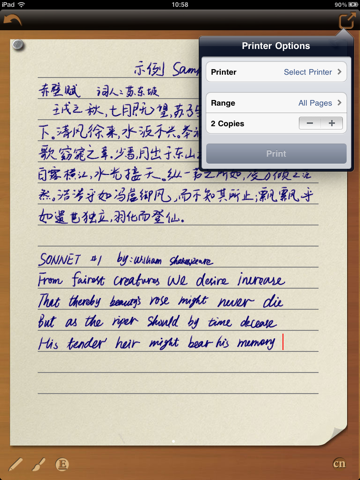 iPad 10:58 90%
Printer Options
Printer Select Printer
Range All Pages
2 Copies − +
Print
示例 Sam
赤壁赋 词人:苏东坡
壬戌之秋,七月既望,苏子
下。清风徐来,水波不兴。
歌窈窕之章。少焉,月出于东山
白露横江,水光接天。纵一苇之所如,凌万顷之茫
然。浩浩乎如冯虚御风,而不知其所止;飘飘乎
如遗世独立,羽化而登仙。
SONNET #1 by: William Shakespeare
From fairest creatures we desire increase
That thereby beauty's rose might never die
But as the riper should by time decease
His tender heir might bear his memory
E cn